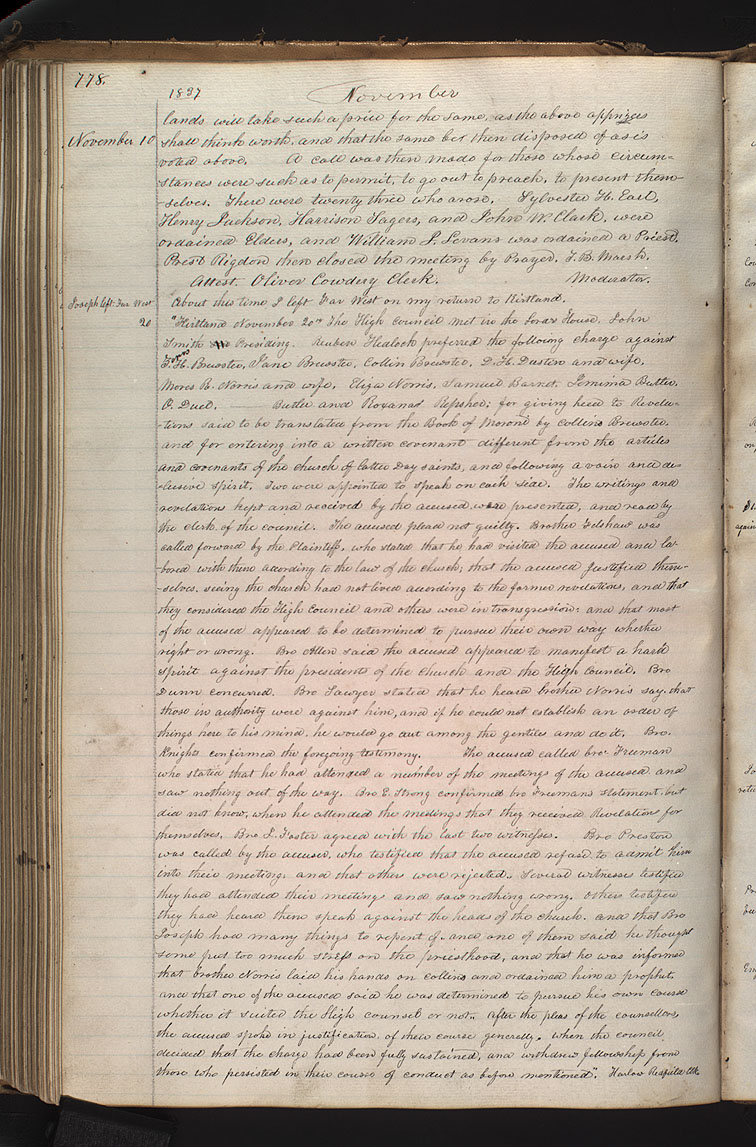 778.
1837 November
lands will take such a price for the same, as the above apprizes
November 10
shall think worth, and that the same be then disposed of as is
voted above. A call was then made for those whose circum-
stances were such as to permit, to go out to preach, to present them-
-selves. There were twenty three who arose. Sylvester H. Earl,
Henry Jackson, Harrison Sagers, and John W. Clark, were
ordained Elders, and William P. Levans was ordained a Priest.
Prest Rigdon then closed the meeting by Prayer. T. B. Marsh,
Attest. Oliver Cowdery Clerk. Moderator.
Joseph left Far West
About this time I left Far West on my return to Kirtland.
20
"Kirtland November 20th The High Council met in the Lords House, John
Smith Presiding. Reuben Hedlock preferred the following charge against
Bro's
H. Brewster, Jane Brewster, Collin Brewster, D. H. Dustin and wife,
Moses R. Norris and wife, Eliza Norris, Samuel Barnet, Jemima Butler,
O. Duel, Butler and Roxana Repsher; for giving heed to Revela-
-tions said to be translated from the Book of Moroni by Collins Brewster.
and for entering into a written covenant different from the articles
and covenants of the church of latter Day saints, and following a vain and de-
-lusive spirit. Two were appointed to speak on each side. The writings and
revelations kept and received by the accused were presented, and read by
the clerk of the council. The accused plead not guilty. Brother Felshaw was
called forward by the Plaintiff, who stated that he had visited the accused and la-
-bored with them according to the law of the church; that the accused justified them-
-selves, seeing the church had not lived according to the former revelations, and that
they considered the High Council and others were in transgression: and that most
of the accused appeared to be determined to pursue their own way whether
right or wrong. Bro Allen said the accused appeared to manifest a hard
spirit against the presidents of the church and the High Council. Bro
Dunn concurred. Bro Sawyer stated that he heard brother Norris say that
those in authority were against him, and if he could not establish an order of
things here to his mind, he would go out among the gentiles and do it. Bro.
Knights confirmed the foregoing testimony. The accused called bro. Freeman
who stated that he had attended a number of the meetings of the accused and
saw nothing out of the way. Bro E. Strong confirmed bro Freemans statement, but
did not know, when he attended the meetings that they received Revelation for
themselves. Bro L. Foster agreed with the last two witnesses. Bro Preston
was called by the accuser, who testified that the accused refused to admit him
into their meeting, and that others were rejected. Several witnesses testified
they had attended their meetings and saw nothing wrong. Others testified
they had heard them speak against the heads of the church. and that Bro
Joseph had many things to repent of. and one of them said he thought
some put too much stress on the priesthood, and that he was informed
that brother Norris laid his hands on Collins and ordained him a prophet.
and that one of the accused said he was determined to pursue his own course
whether it suited the High council or not. After the pleas of the counsellors,
the accused spoke in justification of their course generally. when the council
decided that the charge had been fully sustained, and withdrew fellowship from
those who persisted in their course of conduct as before mentioned". Harlow Redfield Clk.